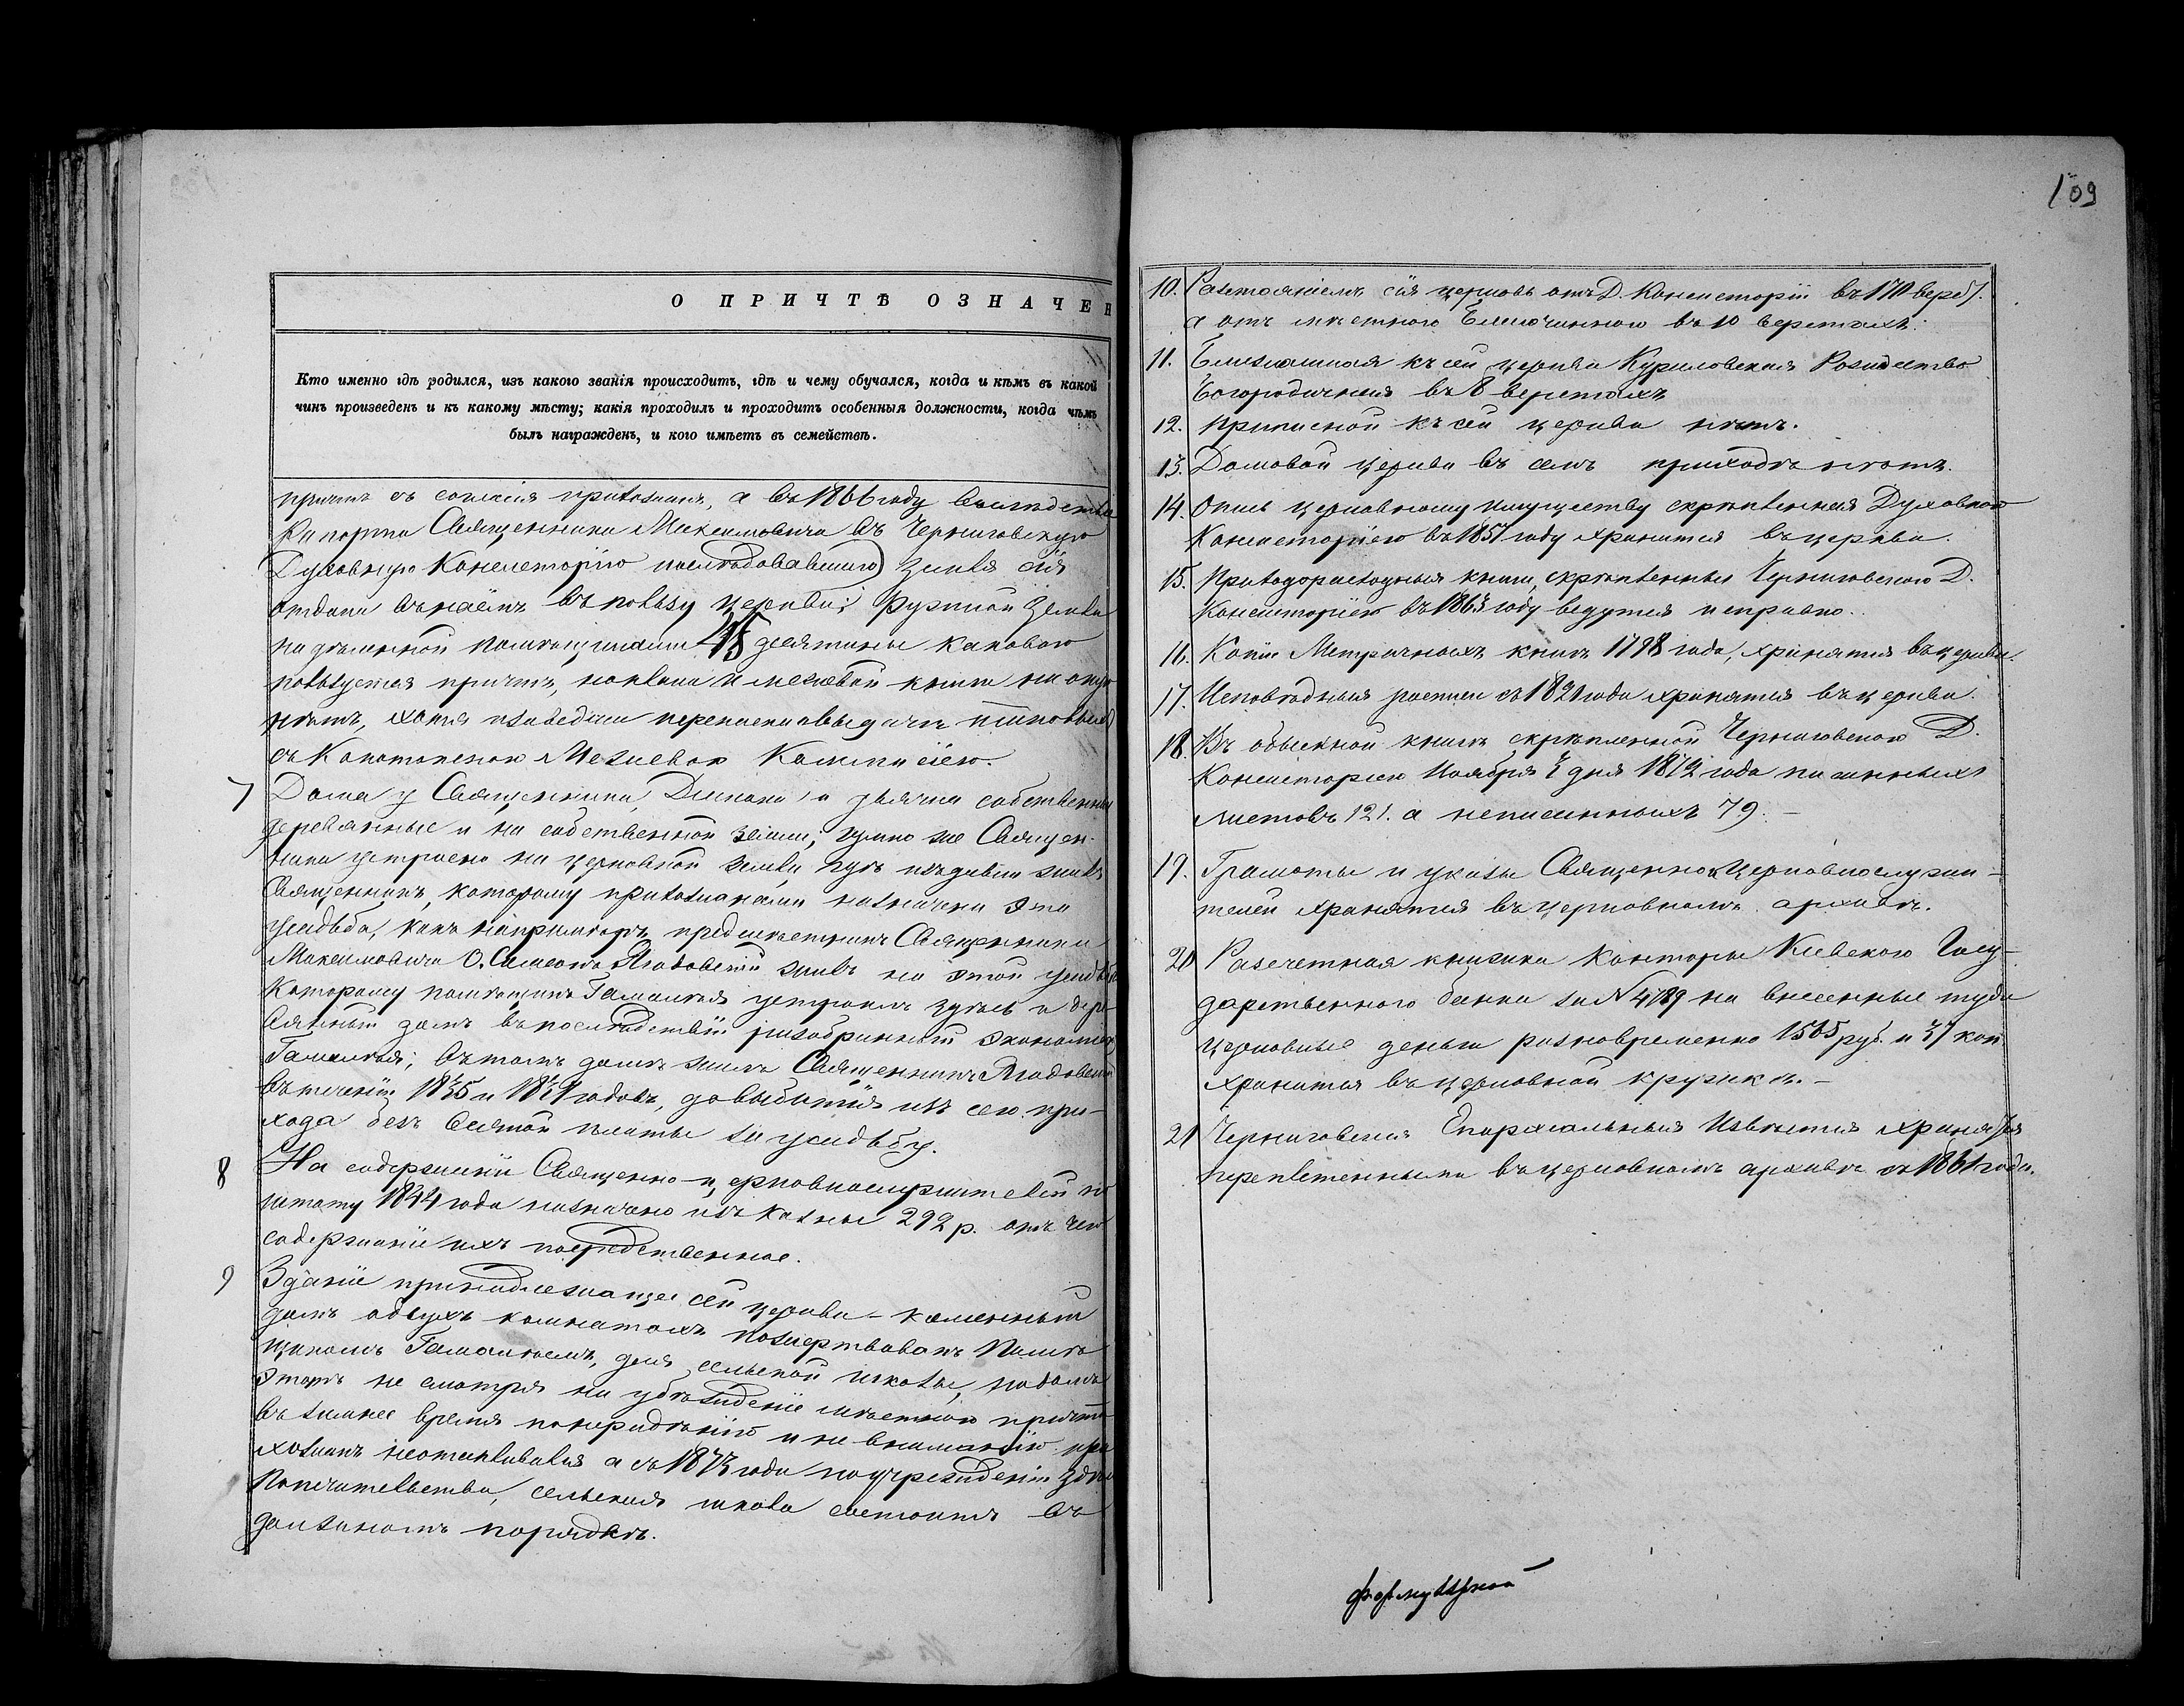 О ПРИЧТѢ ОЗНАЧЕН
Кто именно гдѣ родился, изъ какого званія происходитъ, гдѣ и чему обучался, когда и кѣмъ въ какой
чинъ произведенъ и къ какому мѣсту; какія проходилъ и проходитъ особенныя должности, когда чѣмъ
былъ награжденъ, и кого имѣетъ въ семействѣ.
причтъ съ согласія прихожанъ, а въ 1866 году вслѣдствіе
Рапорта Священника Максимовича въ Черниговскую
Духовную Консисторію послѣдовавшаго земля сія
отдана въ наемъ въ пользу церкви; Ружной земли
надѣленной помѣщиками десятины каковою
пользуется причтъ, но плана и межевой книги на оную
нѣтъ, хотя
съ Конотопскою Межевою Коммисіею.
7 Дома у Священника, Диакона и дьячка собственные
деревянные и на собственной земли; гумно же Священ-
ника устроено на церковной земли гдѣ издавна жилъ
Священникъ, которому прихожанами назначена эта
усадьба, какъ напримѣръ предмѣстникъ Священника
Максимовича О. Симеонъ Ягодовскій жилъ на этой усадьбѣ
Которому помѣщикъ Гамалѣя устроилъ здѣсь и дере-
вянный домъ въ послѣдствіи разобранный Экономіею
Гамалѣя; въ томъ домѣ жилъ Священникъ Ягодовскій
въ теченіи годовъ, до выбытія изъ сего при-
хода безъ всякой платы за усадьбу.
8 На содержаніи Священно-церковнослужителей по
штату 1844 года назначено изъ казны 292 р. отъ чего
содержаніе ихъ посредственное.
9 Зданіе принадлежащее сей церкви - каменный
домъ о двухъ комнатахъ пожертвованъ Помѣ
щикомъ Гамалѣемъ, для сельской школы, но домъ
этотъ не смотря на убѣжденіе мѣстнаго причта
въ зимнее время по нерадѣнію и не вниманію при
хожанъ неотапливался а съ 1873 года по учрежденіи здѣсь
Попечительства, сельская школа состоитъ въ
должномъ порядкѣ.
109
10. Разстояніемъ сія церковь отъ Д. Консисторіи въ 170 верст.
а отъ мѣстнаго Благочиннаго въ 10 верстахъ.
11. Ближайшая къ сей церкви Куриловская Рождество
Богородичная въ 8 верстахъ
12. Приписной къ сей церкви нѣтъ.
13. Домовой церкви въ семъ приходѣ нѣтъ.
14. Опись церковному имуществу скрѣпленная Духовною
Консисторіею въ 1857 году хранится въ церкви.
15. Приходорасходныя книги, скрѣпленныя Черниговскою Д.
Консисторіею въ 1863 году ведутся исправно.
16. Копіи Метричныхъ книгъ 1798 года, хранятся въ церкви.
17. Исповѣдныя росписи съ 1821 года хранятся въ церкви.
18. Въ обыскной книгѣ скрѣпленной Черниговскою Д.
Консисторіею Ноября дня 1872 года писанныхъ
листовъ 121. а неписанныхъ 79. -
19. Грамоты и указы Священно и Церковнослужи-
телей хранятся въ церковномъ архивѣ.
20 Разсчетная книжка Конторы Кіевскаго Госу-
дарственнаго банка за N 4789 на внесенные туда
церковные деньги разновременно 1505 руб. и 37 коп
хранится въ церковной кружкѣ. -
21 Черниговскія Епархіальныя Извѣстія хранятся
переплетенными въ церковномъ архивѣ съ 1861 года.